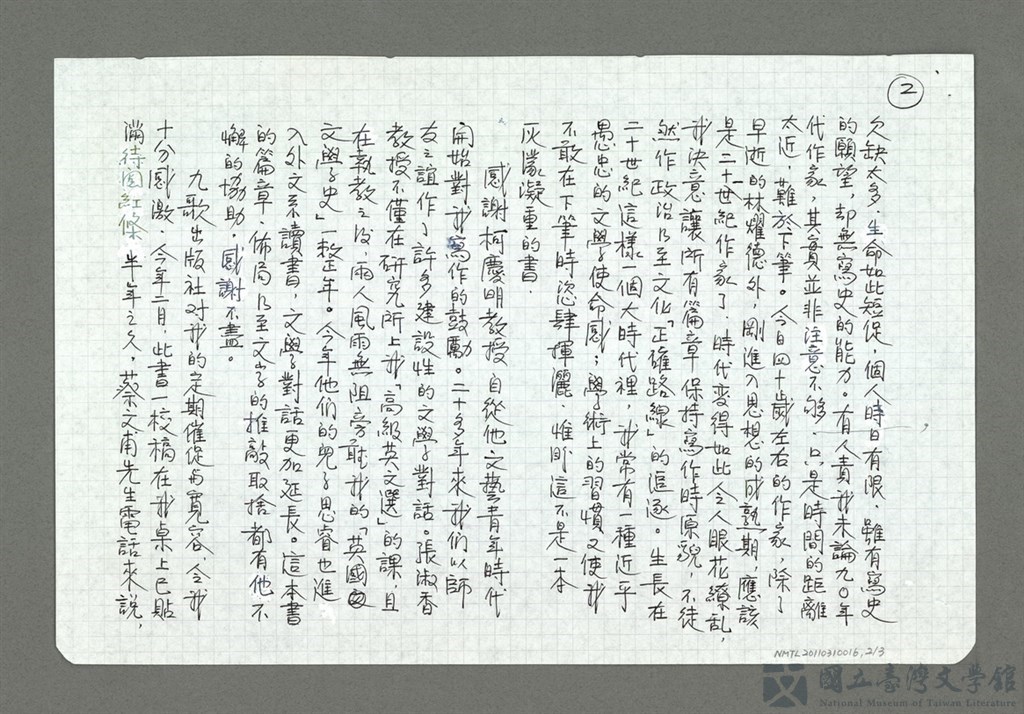 2
欠缺太多．生命如此短促，個人時日有限．雖有寫史
的願望，却無寫史的能力。有人責我未論九〇年
代作家，其實並非注意不够．只是時間的距離
太近，難於下筆。今日四十歲左右的作家，除了
早逝的林燿德外，剛進入思想的成熟期，應該
是二十一世紀作家了．時代变得如此令人眼花繚乱，
我決意讓所有篇章保持寫作時原貌，不徒
然作政治乃至文化「正確路線」的追逐。生長在
二十世紀這樣一個大時代裡，我常有一種近乎
愚忠的文學使命感；學術上的習慣又使我
不敢在下筆時恣肆揮灑．惟盼這不是一本
灰濛凝重的書．
感謝柯慶明教授自從他文藝青年時代
開始對我寫作的鼓勵。二十多年來我們以師
友之誼作了許多建設性的文學對話。張淑香
教授不僅在研究所上我「高級英文選」的課，且
在執教之後，兩人風雨無阻旁聽我的「英國
文學史」一整年。今年他們的兒子思睿也進
入外文系讀書，文學對話更加延長。這本書
的篇章、佈局乃至文字的推敲取捨都有他不
懈的協助．感謝不盡。
九歌出版社对我的定期催促与寬容，令我
十分感激．今年二月，此書一校稿在我桌上已貼
滿待圈紅條半年之久，蔡文甫先生電話來說，
NMTL20110310016, 2/3
國立臺灣文學館
National Museum of Taiwan Literature